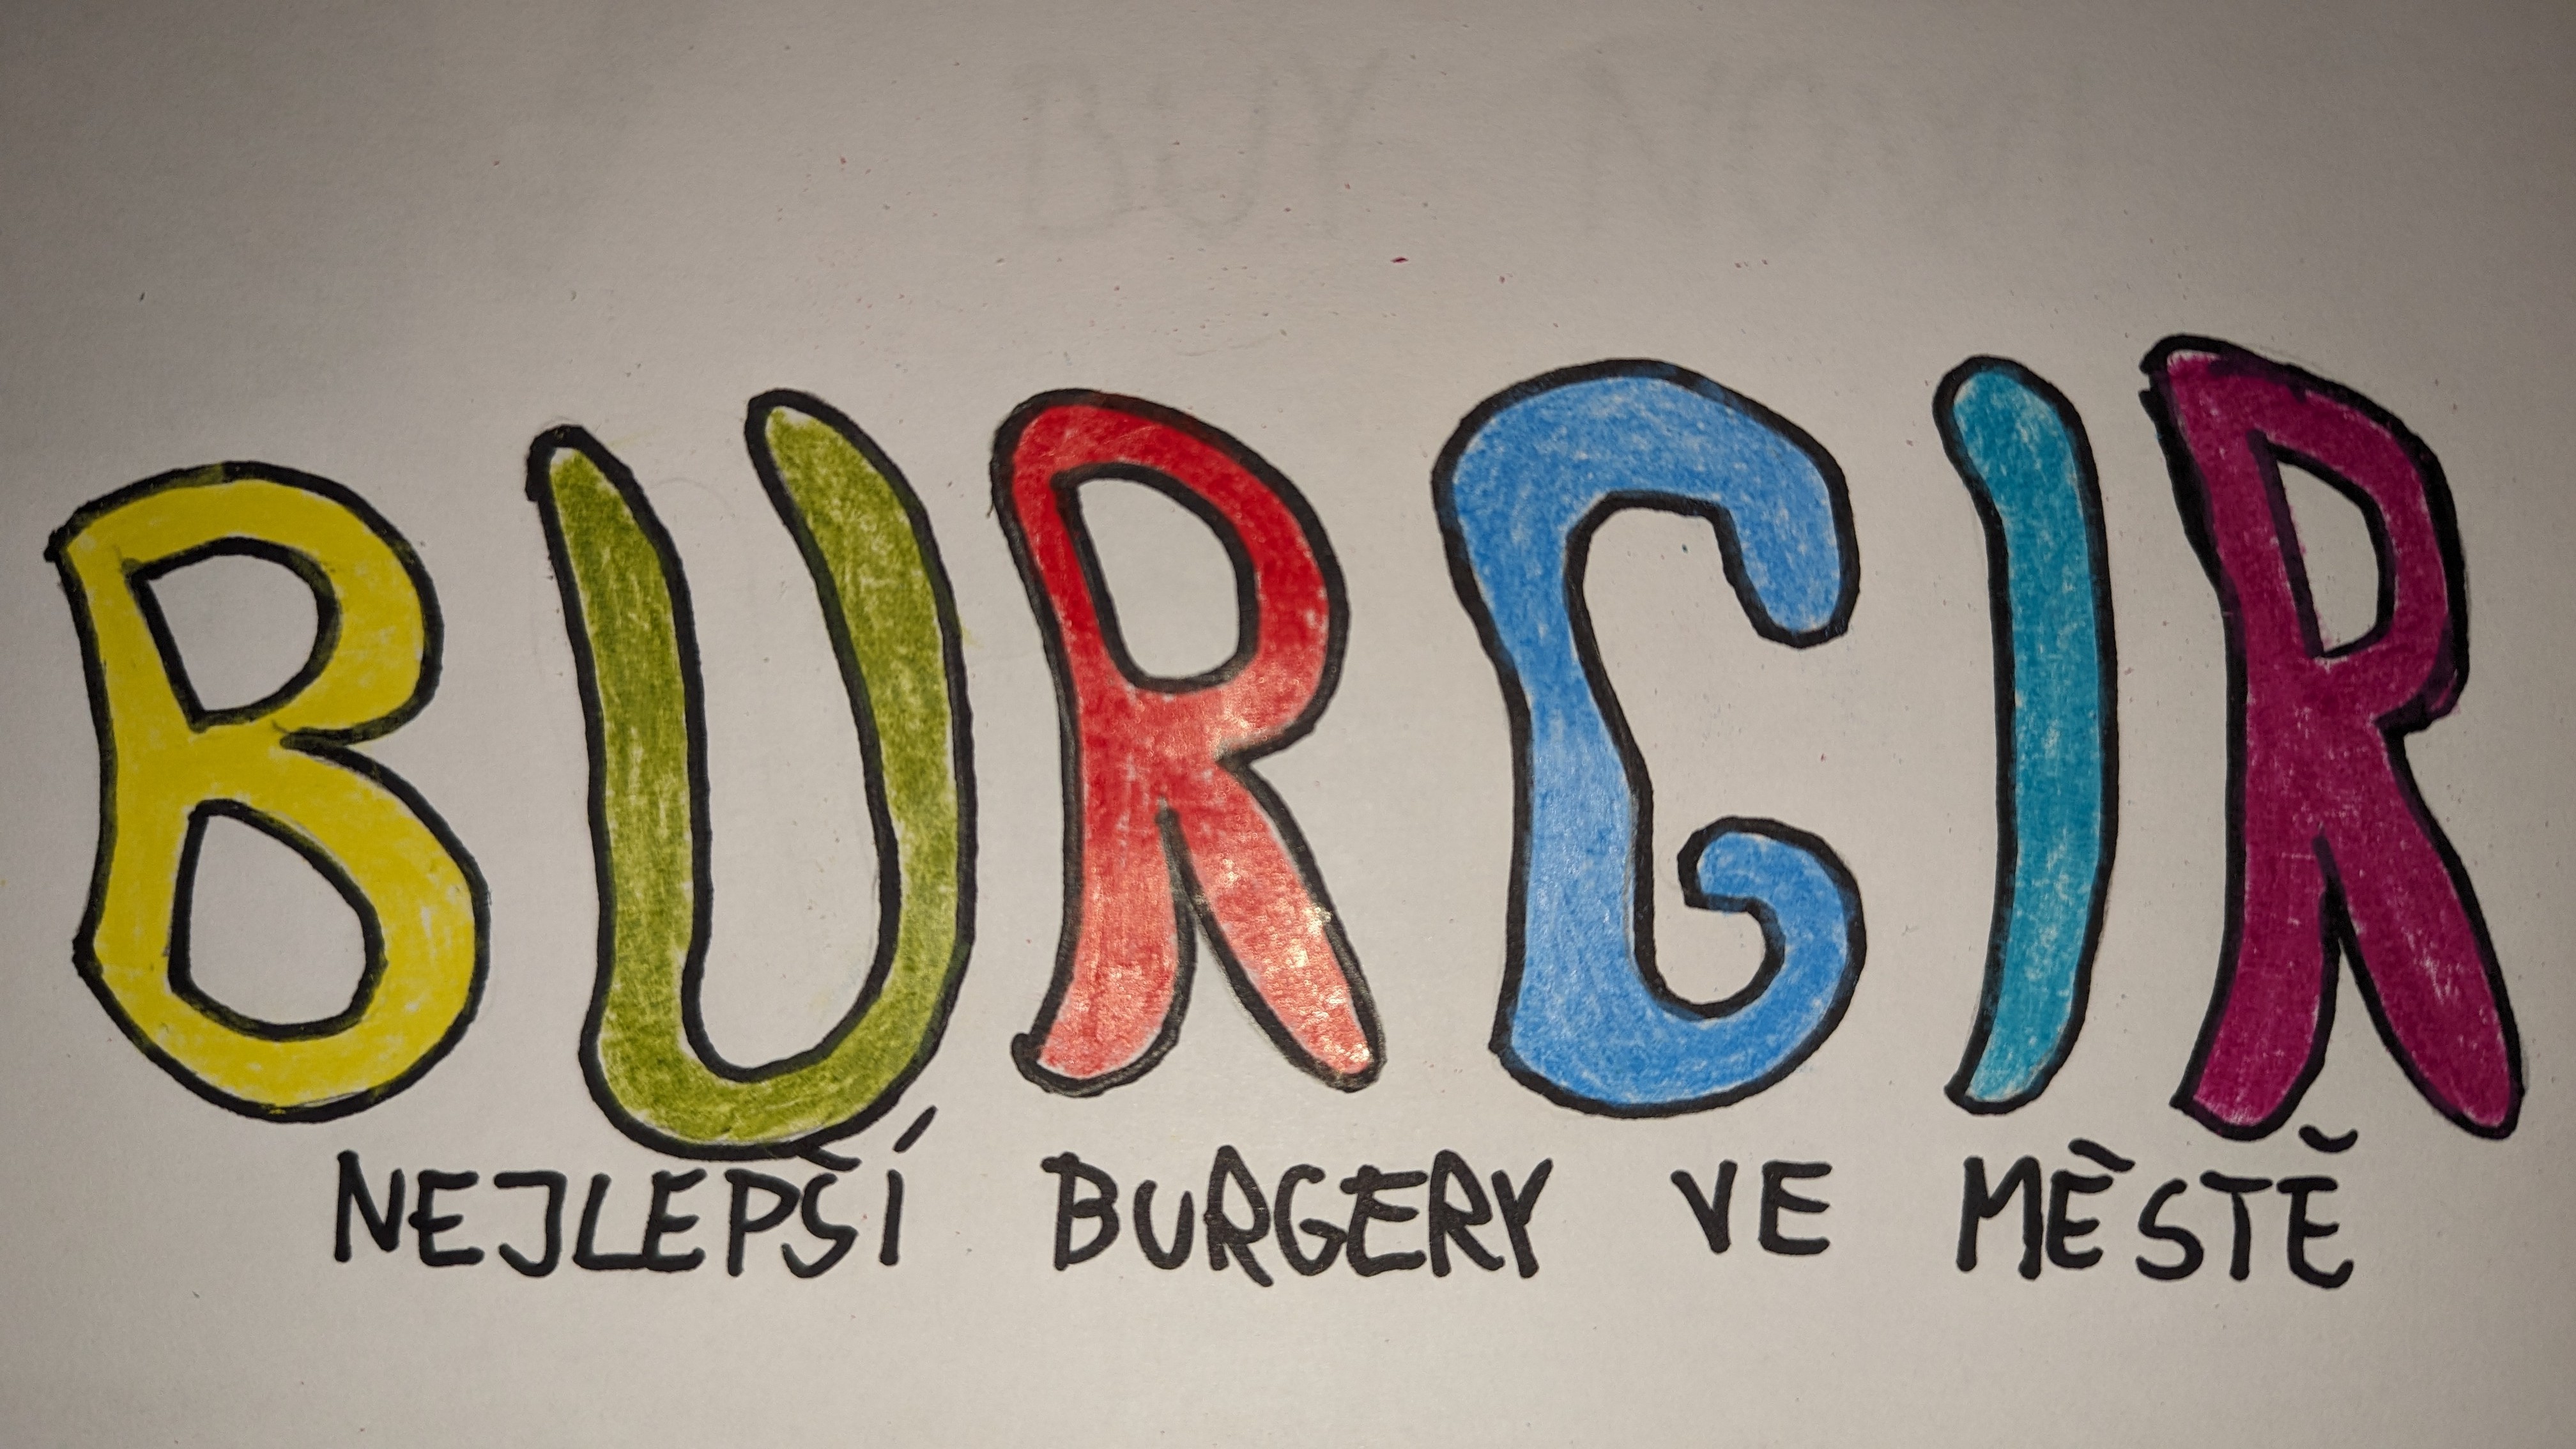 BUY NOW
BURGIR
NEJLEPŠÍ BURGERY VE MĚSTĚ